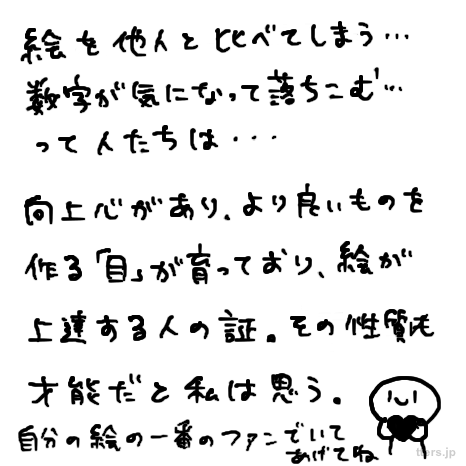 絵を他人と比べてしまう…
数字が気になって落ちこむ…
って人たちは・・・
向上心があり、より良いものを
作る「目」が育っており、絵が
上達する人の証。その性質も
才能だと私は思う。
自分の絵の一番のファンでいて
あげてね
tters.jp